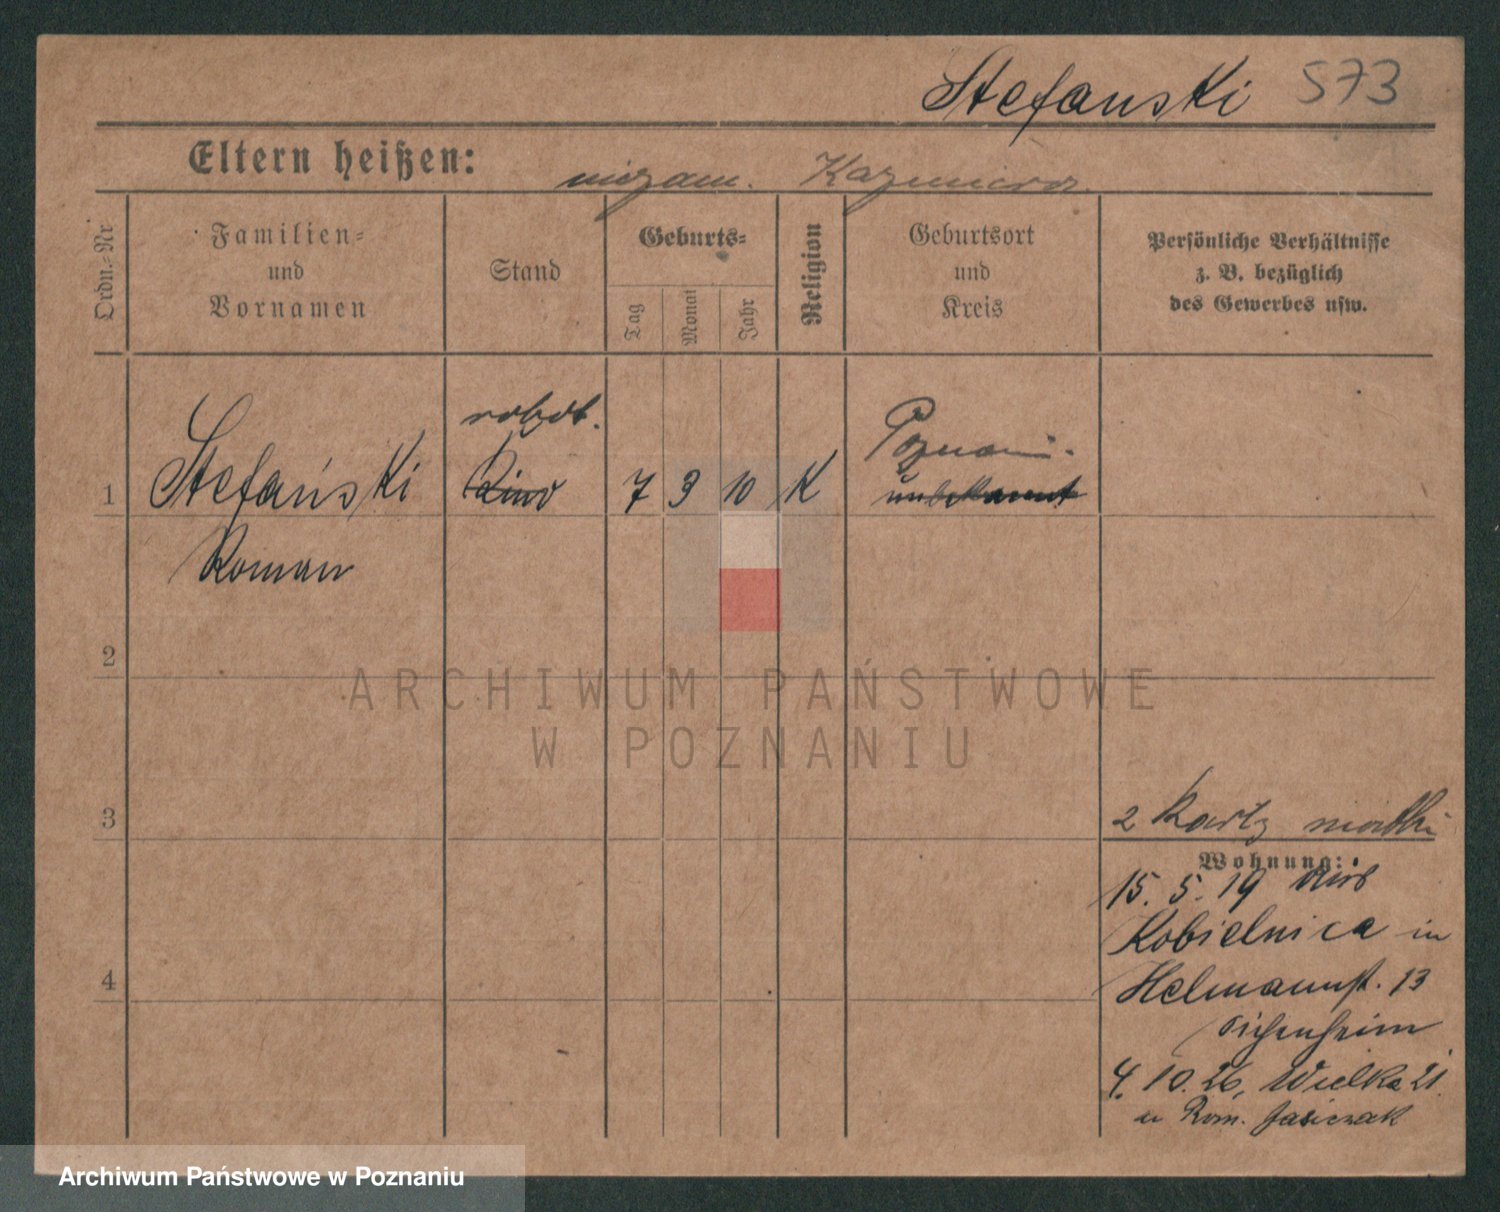 Stefanski 573
Eltern heißen: niezam. Kazimiera
Ordn.-Nr
Familien-
und
Vornamen
Stand
Geburts-
Tag
Monat
Jahr
Religion
Geburtsort
und
Kreis
Persönliche Verhältnisse
z. B. bezüglich
des Gewerbes usw.
robot.
Poznań.
1 Stefański Kind 7 3 10 K unbekannt
Roman
2
3
2 Karty matki
Wohnung:
15. 5. 19 aus
Kobielnica in
4
Helmannst. 13
Eichenheim
4. 10. 26, Wielka 21
u Rom. Jasiczak
ARCHIWUM PAŃSTWOWE
W POZNANIU
Archiwum Państwowe w Poznaniu